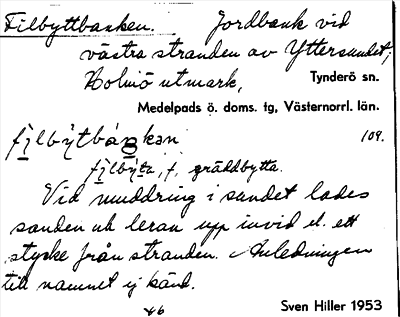 Filbyttbanken. Jordbank vid
västra stranden av Yttersundet,
Holmö utmark, Tynderö sn.
Medelpads ö. doms. tg, Västernorrl. län.
filbytbánkan 109.
filbýta, f, gräddbytta.
Vid muddring i sundet lades
sanden och leran upp invid el. ett
stycke från stranden. Anledningen
till namnet ej känd.
Sven Hiller 1953